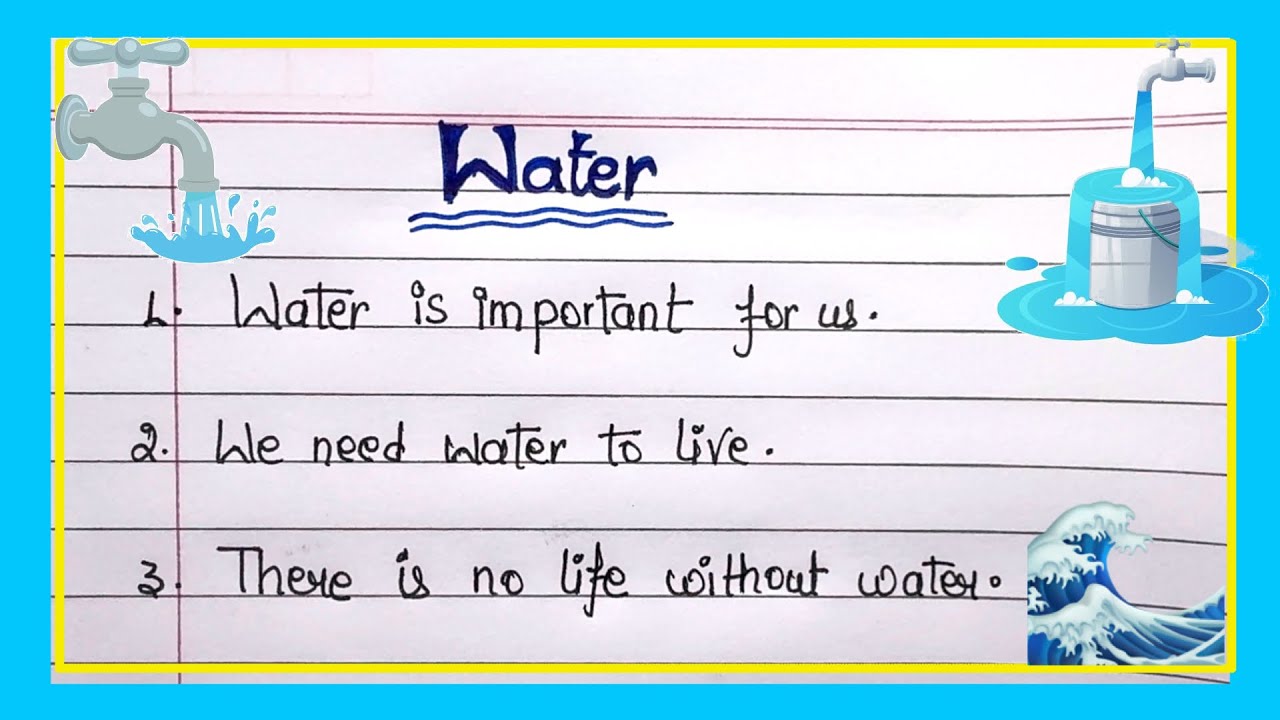 Water
1. Water is important for us.
2. We need water to live.
3. There is no life without water.